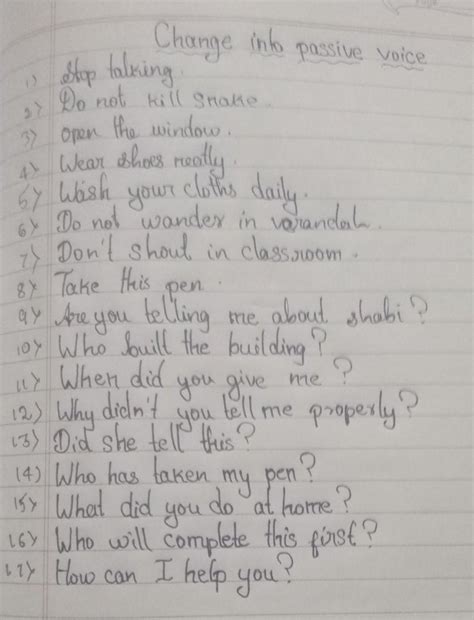 Change into passive voice
1) Stop talking.
2) Do not kill snake.
3) open the window.
4) Wear shoes neatly.
5) Wash your cloths daily.
6) Do not wander in varandah.
7) Don't shout in classroom.
8) Take this pen.
9) Are you telling me about shabi?
10) Who built the building?
11) When did you give me?
12) Why didn't you tell me properly?
13) Did she tell this?
14) Who has taken my pen?
15) What did you do at home?
16) Who will complete this first?
17) How can I help you?